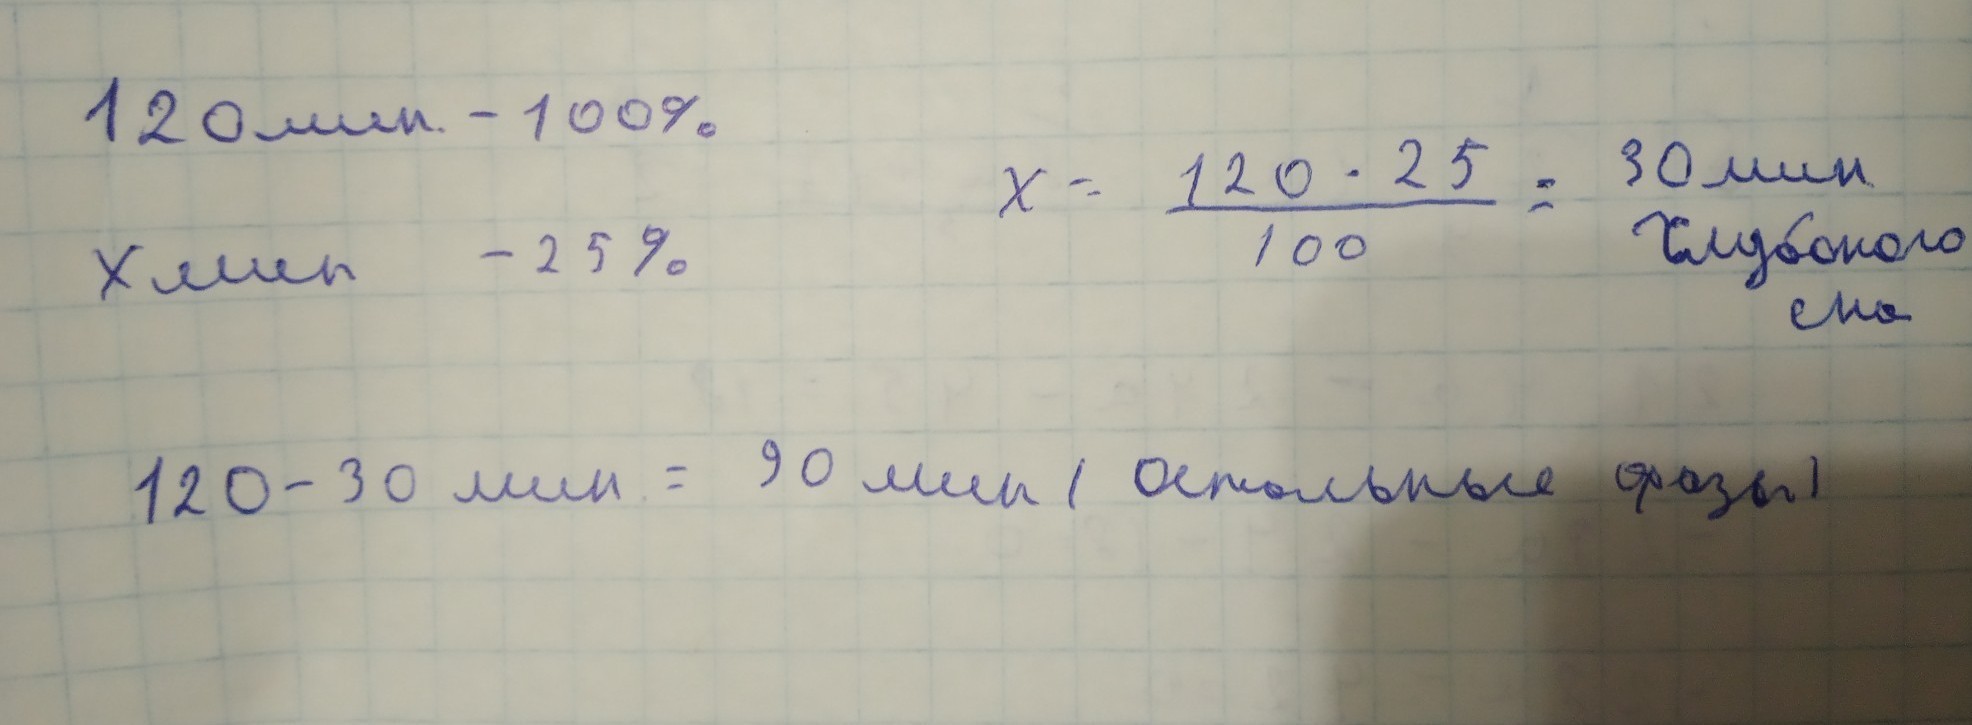 120 мин. - 100%
x = 120 · 25 / 100 = 30 мин
глубокого
сна
x мин - 25%
120 - 30 мин. = 90 мин ( остальные фазы )